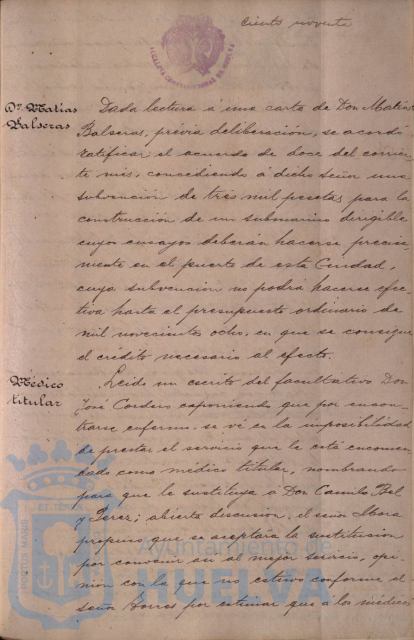 ciento noventa
ALCALDIA CONSTITUCIONAL DE HUELVA
Dn. Matías
Balseras
Dada lectura á una carta de Don Matías
Balseras, previa deliberación, se acordó
ratificar el acuerdo de doce del corrien
te mes, concediendo á dicho señor una
subvención de tres mil pesetas para la
construcción de un submarino dirigible
cuyos ensayos deberán hacerse precisa
mente en el puerto de esta Ciudad,
cuya subvención no podrá hacerse efec
tiva hasta el presupuesto ordinario de
mil novecientos ocho, en que se consigne
el crédito necesario al efecto.
Médico
titular
Leido un escrito del facultativo Don
José Cordero exponiendo que por encon
trarse enfermo se vé en la imposibilidad
de prestar el servicio que le está encomen
dado como médico titular, nombrando
para que le sustituya á Don Camilo Bel
y Perez; abierta discusión, el señor Mora
propuso que se aceptara la sustitución
por convenir así al mejor servicio, opi
nión con la que no estuvo conforme el
señor Borres por estimar que á los médicos
PORTUS MARIS
ET TERRAE
Ayuntamiento de
HUELVA